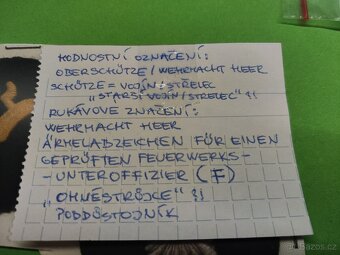 HODNOSTNÍ OZNAČENÍ:
OBERSCHÜTZE/WEHRMACHT HEER
SCHÜTZE = VOJÍN/STŘELEC
„STARŠÍ VOJÍN/STRELEC" !!
RUKÁVOVÉ ZNAČENÍ:
WEHRMACHT HEER
ÄRMELABZEICHEN FÜR EINEN
GEPRÜFTEN FEUERWERKS-
-UNTEROFFIZIER (F)
„OHNĚSTRŮJCE" !!
PODDŮSTOJNÍK
bazos.cz